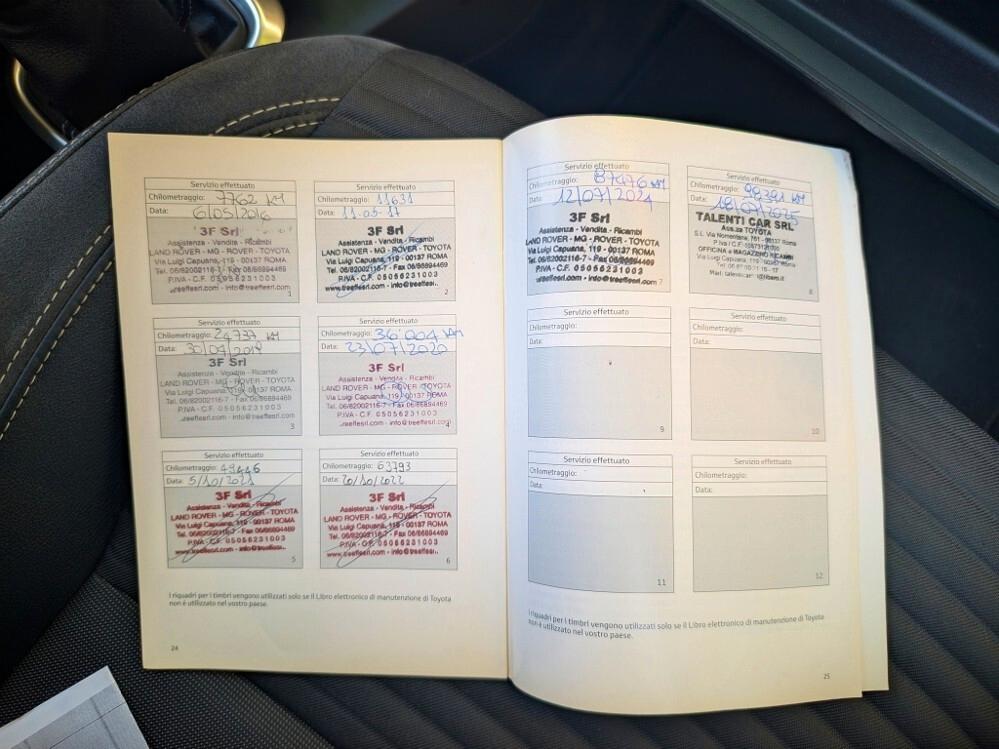 Servizio effettuato
Chilometraggio: 7762 KM
Data: 6/05/2016
3F Srl
Assistenza - Vendita - Ricambi
LAND ROVER - MG - ROVER - TOYOTA
Via Luigi Capuana, 119 - 00137 ROMA
Tel. 06/82002116-7 - Fax 06/86894469
P.IVA - C.F. 05056231003
.treeffesrl.com - info@treeffesrl.
1
Servizio effettuato
Chilometraggio: 11631
Data: 11-05-17
3F Srl
Assistenza - Vendita - Ricambi
LAND ROVER - MG - ROVER - TOYOTA
Via Luigi Capuana, 119 - 00137 ROMA
Tel. 06/82002116-7 - Fax 06/86894469
P.IVA - C.F. 05056231003
.treeffesrl.com - info@treeffesrl.com
2
Servizio effettuato
Chilometraggio: 24737 KM
Data:
3F Srl
Assistenza - Vendita - Ricambi
LAND ROVER - MG - ROVER - TOYOTA
Via Luigi Capuana, 119 - 00137 ROMA
Tel. 06/82002116-7 - Fax 06/86894469
P.IVA - C.F. 05056231003
.reeffesrl.com - info@treeffesrl.com
3
Servizio effettuato
Chilometraggio: 36'001 KM
Data: 23/07/2020
3F Srl
Assistenza - Vendita - Ricambi
LAND ROVER - MG - ROVER - TOYOTA
Via Luigi Capuana, 119 - 00137 ROMA
Tel. 06/82002116-7 - Fax 06/86894469
P.IVA - C.F. 05056231003
.reeffesrl.com - info@treeffesrl.com
4
Servizio effettuato
Chilometraggio: 49446
Data: 5/10/2021
3F Srl
Assistenza - Vendita - Ricambi
LAND ROVER - MG - ROVER - TOYOTA
Via Luigi Capuana, 119 - 00137 ROMA
Tel. 06/82002116-7 - Fax 06/86894469
P.IVA - C.F. 05056231003
www.treeffesrl.com - info@treeffesrl..
5
Servizio effettuato
Chilometraggio: 63793
Data: 20/10/2022
3F Srl
Assistenza - Vendita - Ricambi
LAND ROVER - MG - ROVER - TOYOTA
Via Luigi Capuana, 119 - 00137 ROMA
Tel. 06/82002116-7 - Fax 06/86894469
P.IVA - C.F. 05056231003
www.treeffesrl.com - info@treeffesrl..
6
I riquadri per i timbri vengono utilizzati solo se il Libro elettronico di manutenzione di Toyota
non è utilizzato nel vostro paese.
24
Servizio effettuato
Chilometraggio: 87476 KM
Data: 12/07/2024
3F Srl
Assistenza - Vendita - Ricambi
LAND ROVER - MG - ROVER - TOYOTA
Via Luigi Capuana, 119 - 00137 ROMA
Tel. 06/82002116-7 - Fax 06/86894469
P.IVA - C.F. 05056231003
www.treeffesrl.com - info@treeffesrl.com
7
Servizio effettuato
Chilometraggio: KM
Data: 18/07/2025
TALENTI CAR SRL
Ass.za TOYOTA
S.L. Via Nomentana, 761 - 00137 Roma
OFFICINA e MAGAZZINO RICAMBI
Via Luigi Capuana, 119 - 00137 Roma
8
Servizio effettuato
Chilometraggio:
Data:
9
Servizio effettuato
Chilometraggio:
Data:
10
Servizio effettuato
Chilometraggio:
Data:
11
Servizio effettuato
Chilometraggio:
Data:
12
I riquadri per i timbri vengono utilizzati solo se il Libro elettronico di manutenzione di Toyota
non è utilizzato nel vostro paese.
25